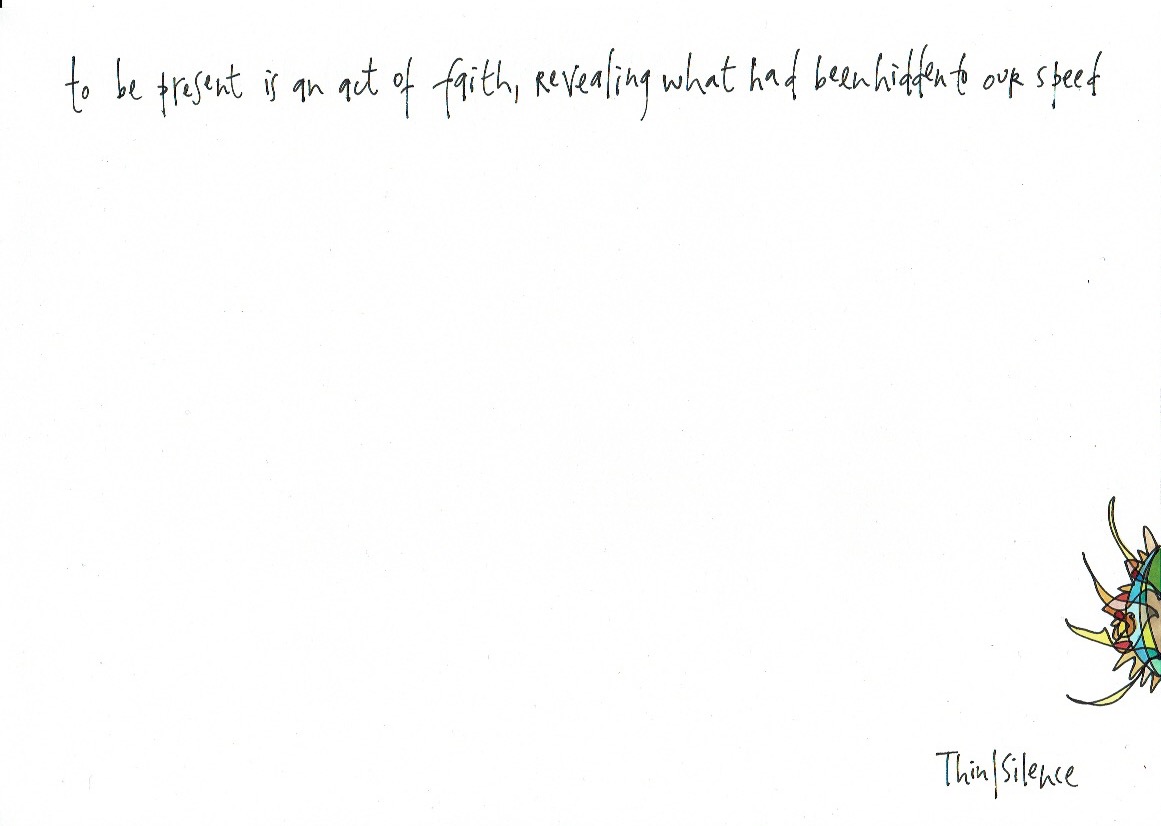 to be present is an act of faith, revealing what had been hidden to our speed
Thin|Silence